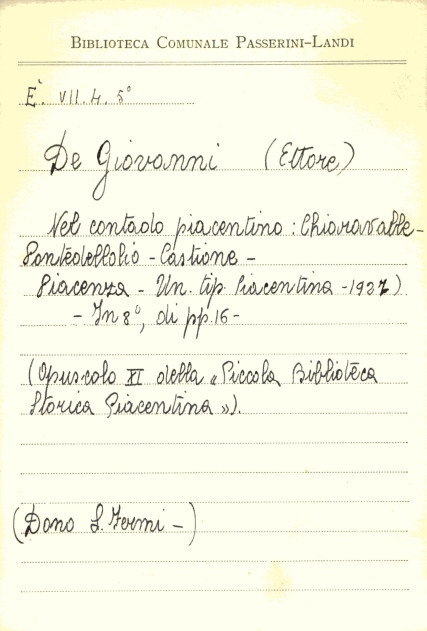 BIBLIOTECA COMUNALE PASSERINI-LANDI
E. VII. 4. 5°
De Giovanni (Ettore)
Nel contado piacentino: Chiaravalle -
Pontedellolio - Castione -
Piacenza - Un. tip. Piacentina - 1927)
- In 8°, di pp. 16 -
(Opuscolo XI della « Piccola Biblioteca
Storica Piacentina »).
(Dono S. Fermi -)